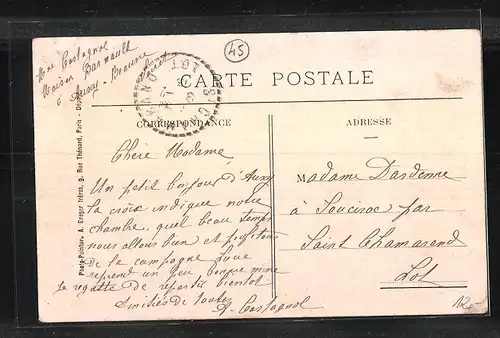 Mme Castagnol
Maison Darnault
à Auxy - Beaune
Loiret
45
CARTE POSTALE
CORRESPONDANCE
ADRESSE
Chère Madame,
Un petit bonjour d'Auxy
la croix indique notre
chambre, quel beau temps
nous allons bien et profitons
de la campagne
reprend un peu bonne mine
Je regatte de repartir bientôt
Amitiés de toutes
A. Castagnol
Madame Dardenne
à par
Saint Chamarand
Lot
Photo-Peinture, A. Gregor frères, 9, Rue Thénard, Paris -
12